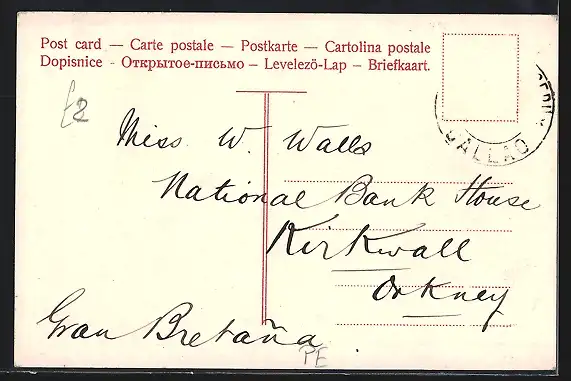 Post card — Carte postale — Postkarte — Cartolina postale
Dopisnice - Открытое-письмо – Levelező-Lap – Briefkaart.
£2
CALLAO
Miss W. Walls
National Bank House
Kirkwall
Orkney
Gran Bretaña.
PE